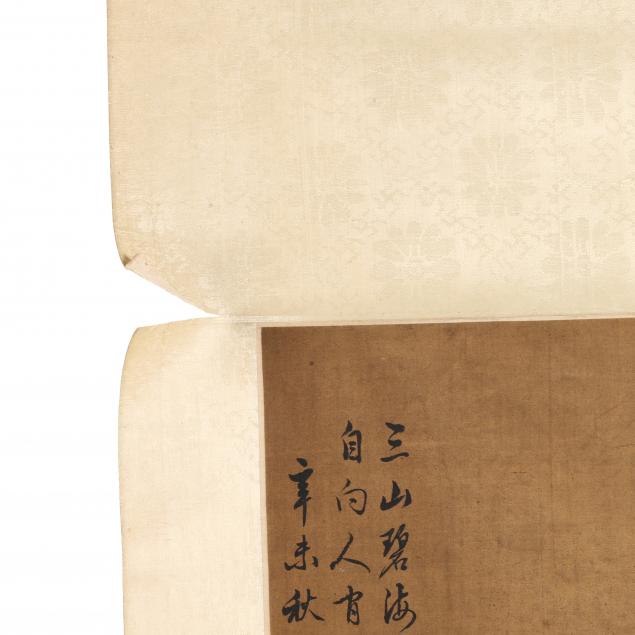 三山碧海
自向人肯
辛未秋